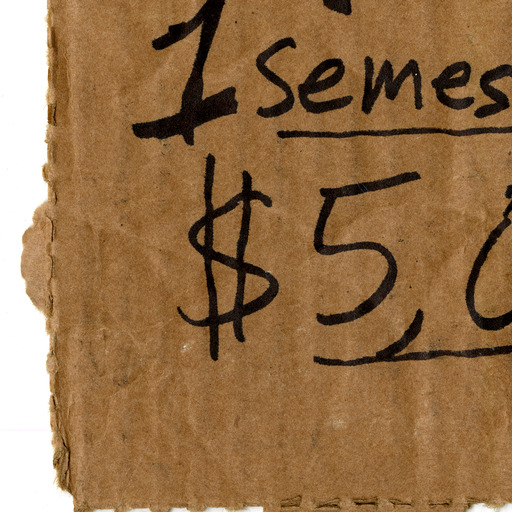 1 semes
$5,0